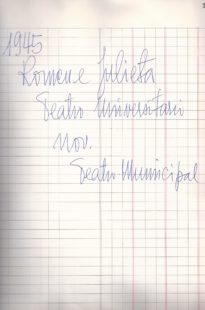 1945
Romeu e Julieta
Teatro Universitario
nov.
Teatro Municipal